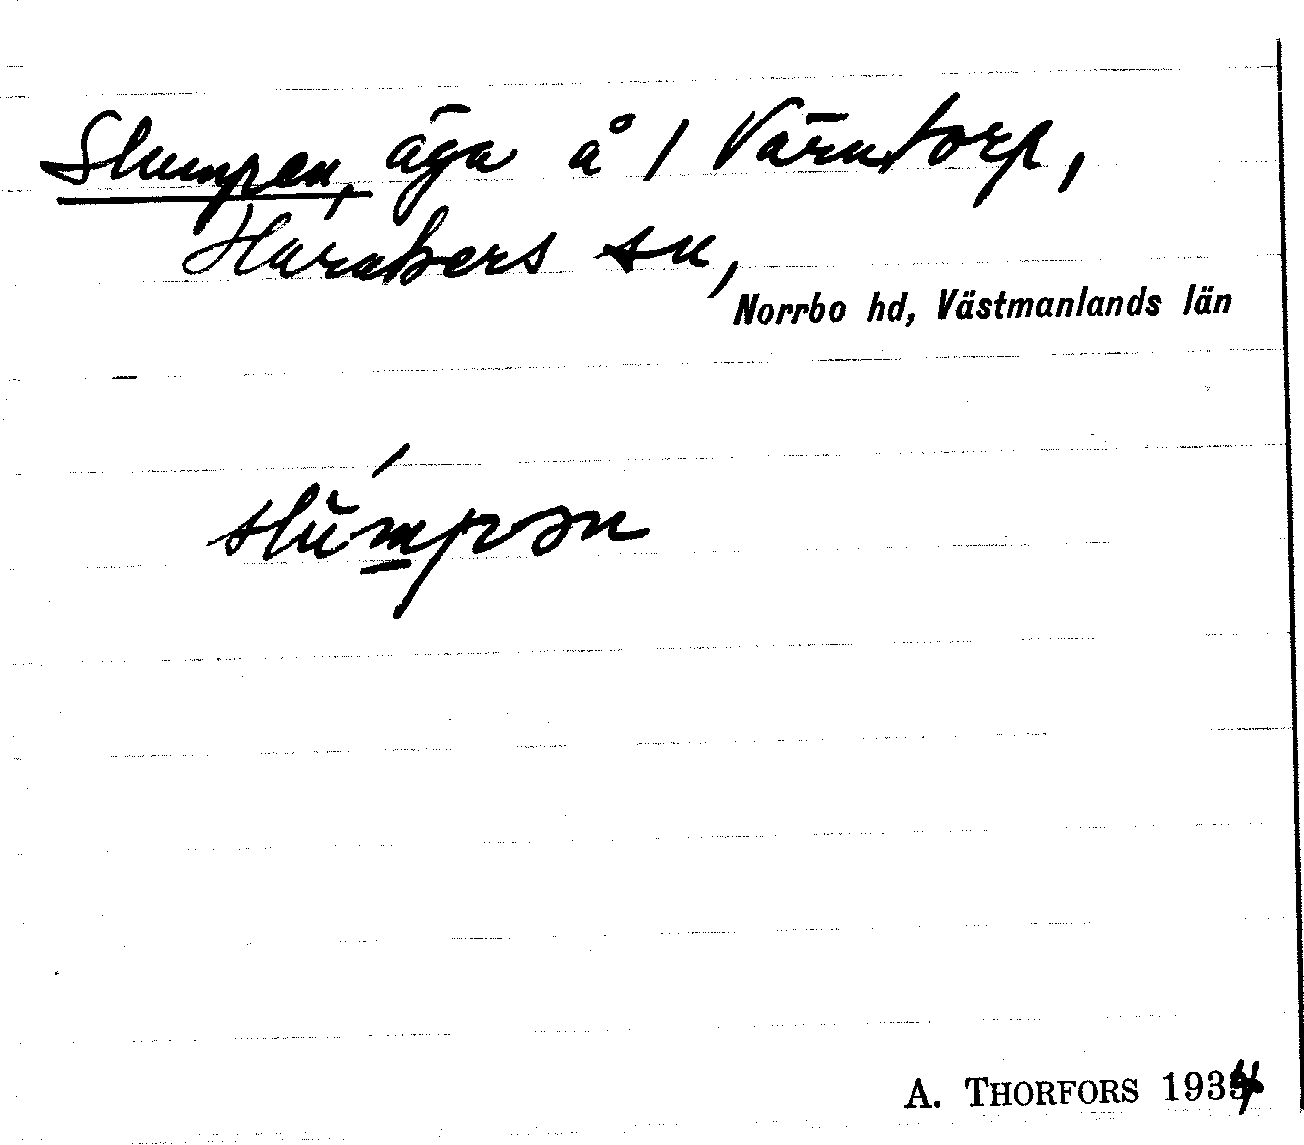 Slumpen, äga å 1 Värntorp,
Haraker sn,
Norrbo hd, Västmanlands län
slúmpən
A. THORFORS 1934